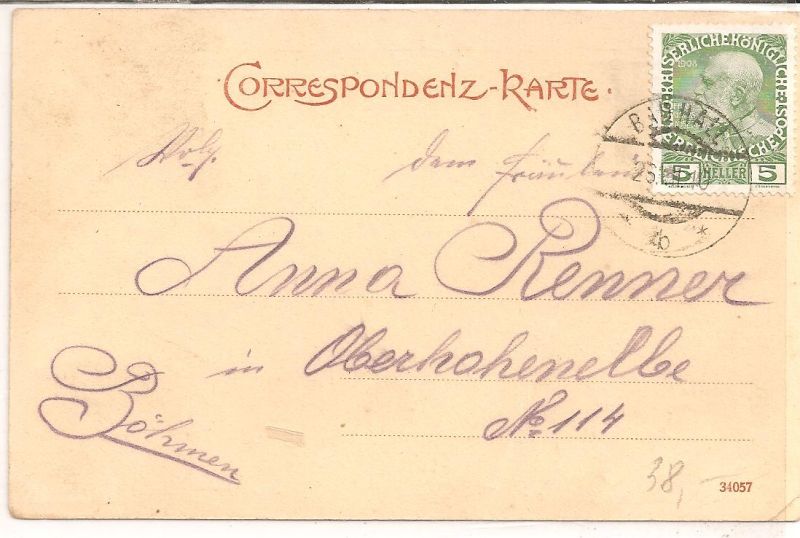 CORRESPONDENZ-KARTE.
KAISERLICHEKÖNIGLICHE
1908
5 HELLER 5
BAD HALL
b *
dem Fräulein
Anna Renner
in Oberhohenelbe
No. 114
Böhmen
38,—
34057